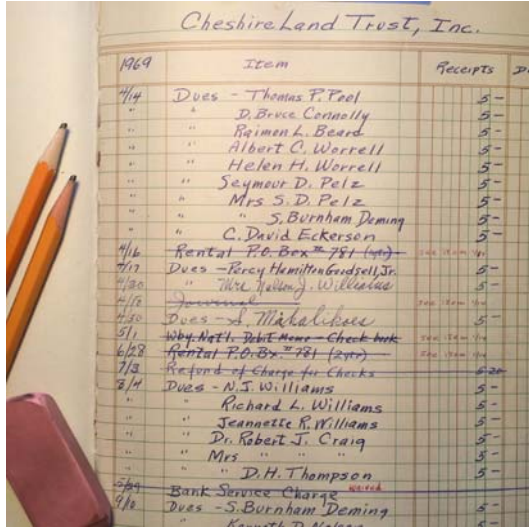 Cheshire Land Trust, Inc.
1969 Item Receipts
4/14 Dues - Thomas P. Pool 5-
" " D. Bruce Connolly 5-
" " Raimon L. Beard 5-
" " Albert C. Worrell 5-
" " Helen H. Worrell 5-
" " Seymour D. Pelz 5-
" " Mrs S. D. Pelz 5-
" " S. Burnham Deming 5-
" " C. David Eckerson 5-
4/16 Rental P.O. Box # 781 (1yr) see item
4/17 Dues - Percy Hamilton Goodsell, Jr. 5-
4/20 " Mrs. Nelson J. Williams 5-
4/18 Journal see item
4/30 Dues - S. Mahalikoes 5-
5/1 Why. Nat'l. Debit Memo - Check book see item
6/28 Rental P.O. Bx. # 781 (2yr) see item
7/3 Refund of Charge for Checks
8/4 Dues - N. J. Williams 5-
" Richard L. Williams 5-
" Jeannette R. Williams 5-
" Dr. Robert J. Craig 5-
" Mrs " " " 5-
" " D. H. Thompson 5-
Bank Service Charge waived
9/10 Dues - S. Burnham Deming 5-
" Kenneth D.